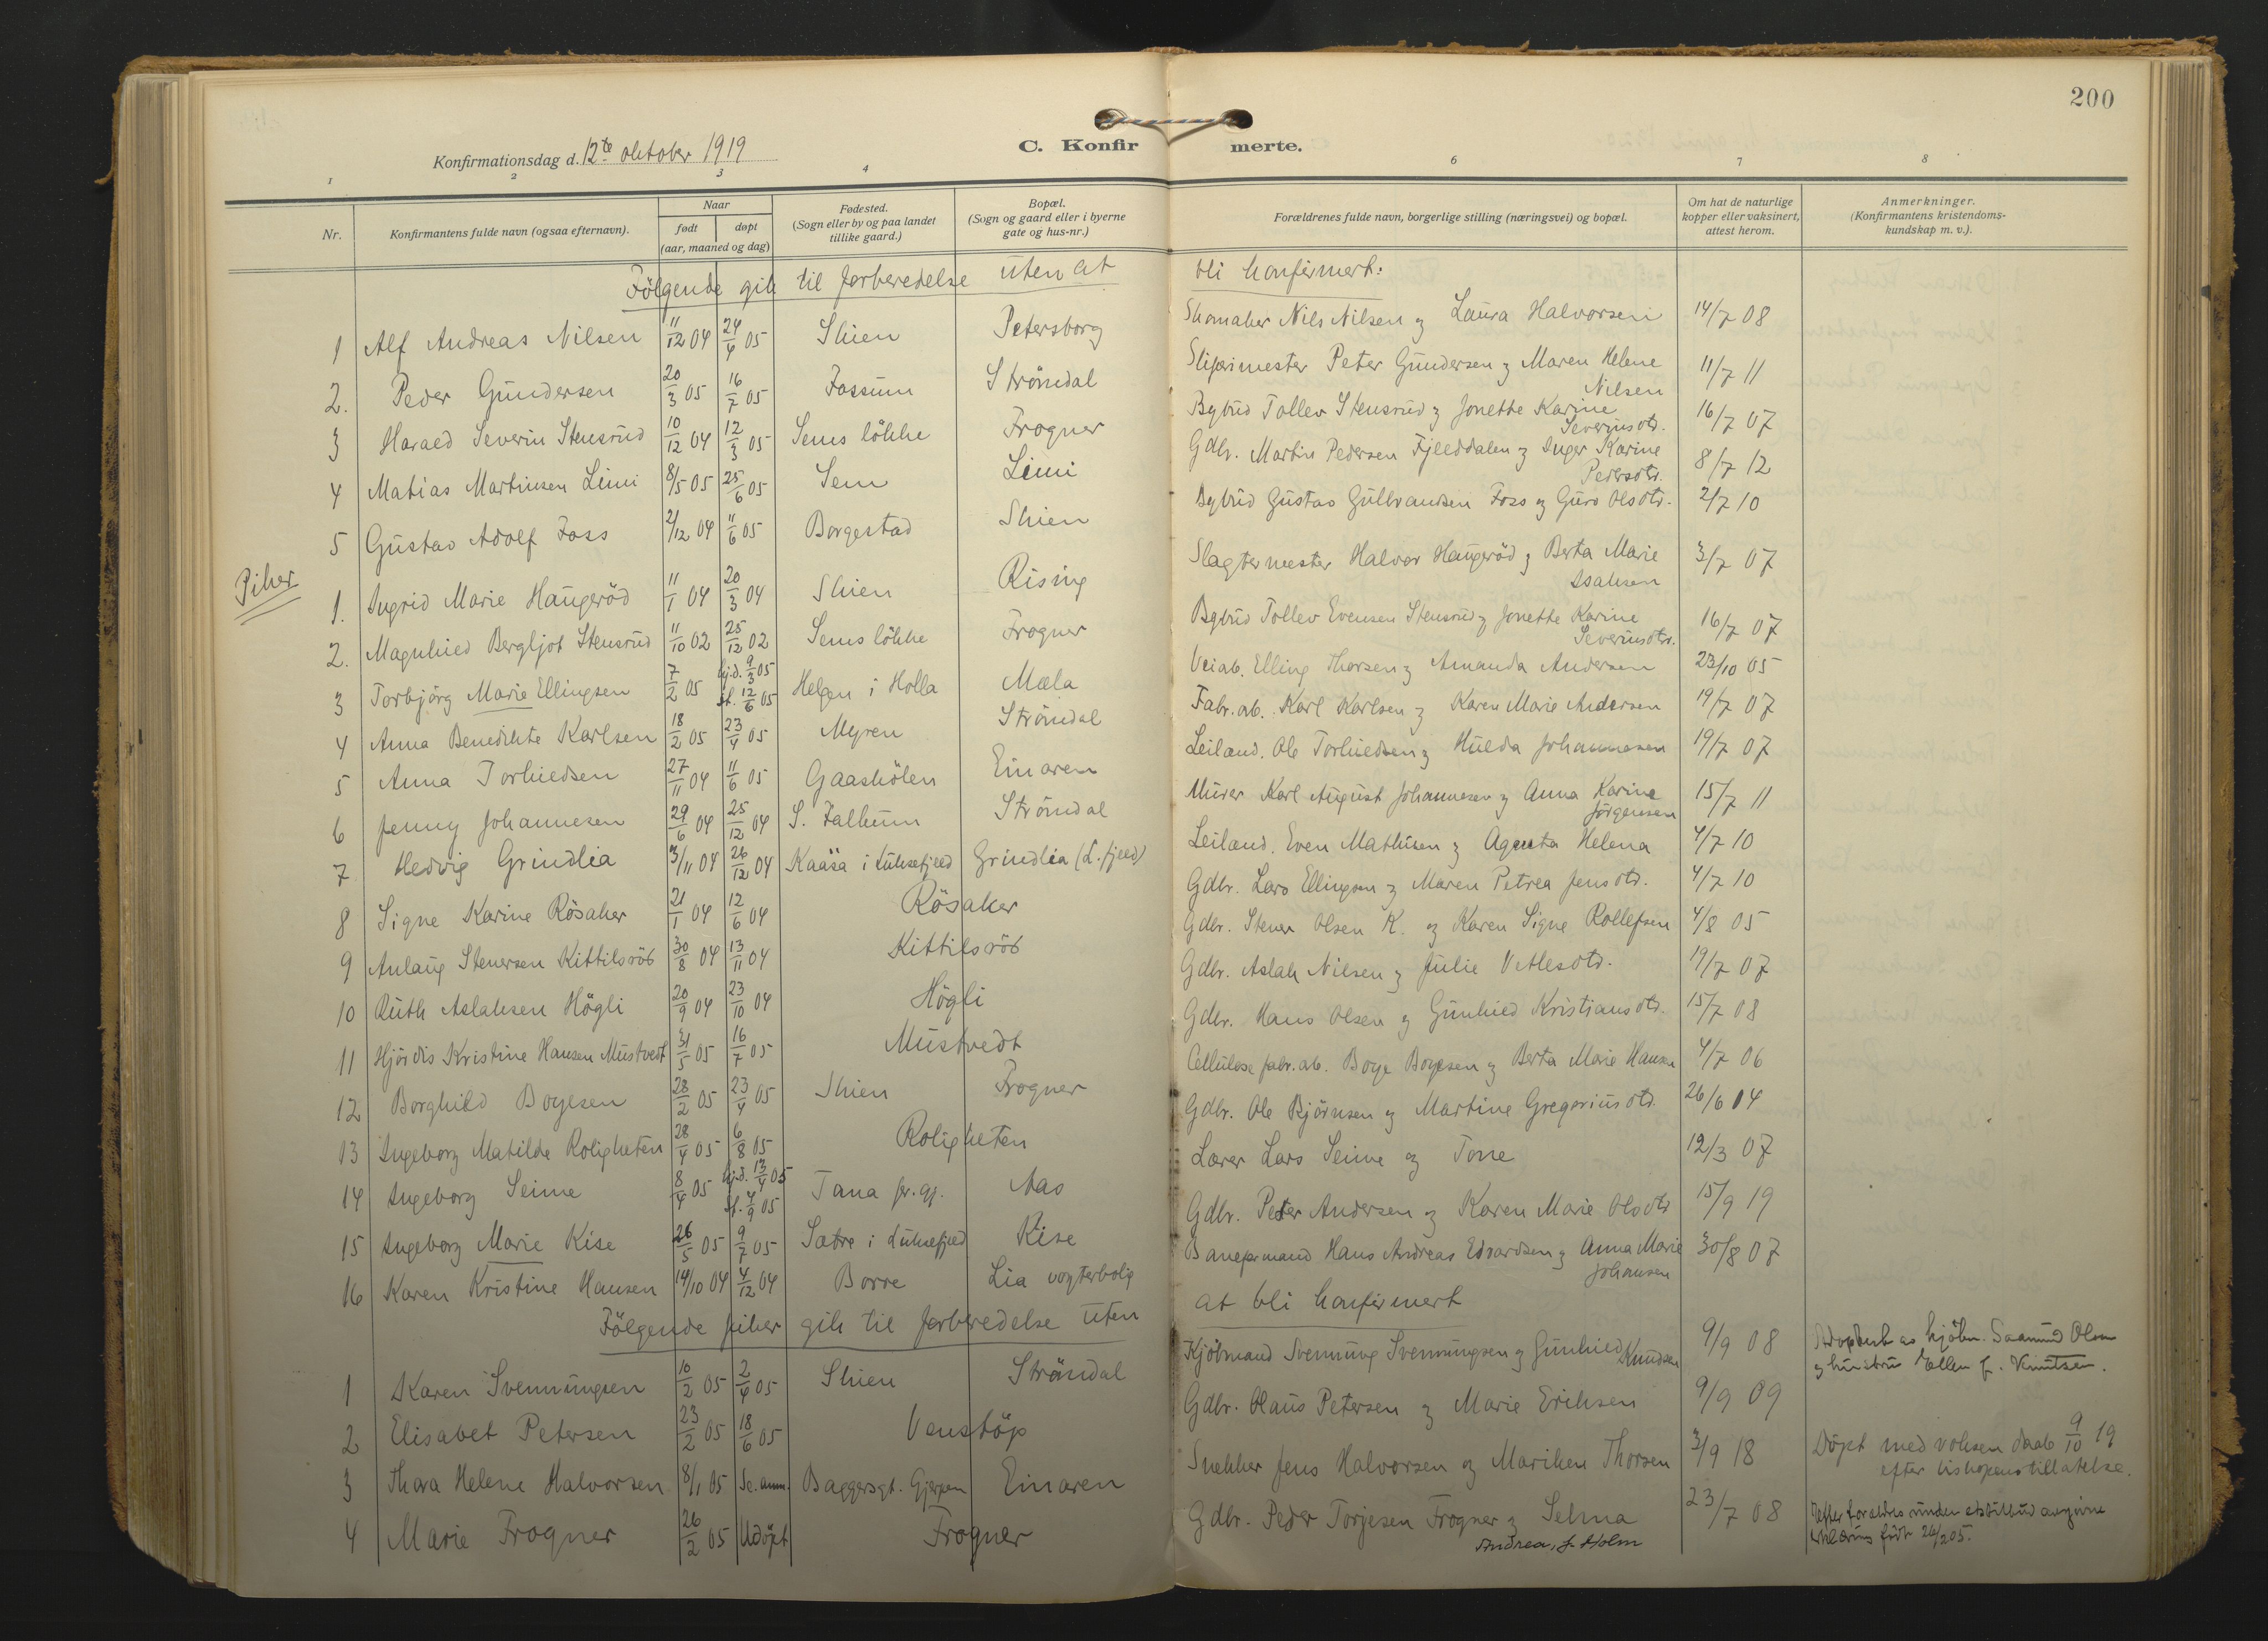 200
Konfirmationsdag d. 12te oktober 1919
C. Konfir merte.
1 2 3 4 6 7 8
Nr. Konfirmantens fulde navn (ogsaa efternavn). Naar født døpt (aar, maaned og dag) Fødested. (Sogn eller by og paa landet tillike gaard.) Bopæl. (Sogn og gaard eller i byerne gate og hus-nr.) Forældrenes fulde navn, borgerlige stilling (næringsvei) og bopæl. Om hat de naturlige kopper eller vaksinert, attest herom. Anmerkninger. (Konfirmantens kristendoms-kundskap m. v.).
Følgende gik til forberedelse uten at bli konfirmert:
1 Alf Andreas Nilsen 11/12 04 24/4 05 Skien Petersborg Skomaker Nils Nilsen og Laura Halvorsen 14/7 08
2. Peder Gundersen 20/3 05 16/7 05 Fossum Strömdal Sliperimester Peter Gundersen og Maren Helene Nilsen 11/7 11
3 Harald Severin Stensrud 10/12 04 12/3 05 Sems lökke Frogner Bgbud Tollev Stensrud og Jonette Karine Severinsdtr. 16/7 07
4 Matias Martinsen Limi 8/5 05 25/6 05 Sem Limi Gdbr. Martin Pedersen Fjelddalen og Inger Karine Pedersdtr. 8/7 12
5 Gustav Adolf Foss 2/12 04 11/6 05 Borgestad Skien Bybud Gustav Gulbrandsen Foss og Guro Olsdtr. 2/7 10
Piker
1. Ingrid Marie Haugeröd 11/1 04 20/3 04 Skien Rising Slagtermester Halvor Haugeröd og Berta Marie Isaksen 3/7 07
2. Magnhild Bergljot Stensrud 11/10 02 25/12 02 Sems lökke Frogner Bybud Tollev Evensen Stensrud og Jonette Karine Severinsdtr. 16/7 07
3 Torbjörg Marie Ellingsen 7/2 05 hj.d. 9/3 05 st. 12/6 05 Helgen i Holla Mæla Veiab. Elling Thorsen og Amanda Andersen 23/10 05
4 Anna Benedikte Karlsen 18/2 05 23/4 05 Myren Strömdal Fabr.arb. Karl Karlsen og Karen Marie Andersen 19/7 07
5 Anna Torkildsen 27/11 04 11/6 05 Gaasholen Einaren Leiland. Ole Torkildsen og Hulda Johannesen 19/7 07
6 Jenny Johannesen 29/6 04 25/12 04 S. Falkum Strömdal Murer Karl August Johannesen og Anna Karine Jörgensen 15/7 11
7 Hedvig Grindlia 3/11 04 26/12 04 Kaasa i Luksefjeld Grindlia (L.fjeld) Leiland. Even Mathisen og Helena 4/7 10
8 Signe Karine Rösaker 21/1 04 12/6 04 Rösaker Gdbr. Lars Ellingsen og Maren Petrea Jensdtr. 4/7 10
9 Aslaug Stenersen Kittilsröd 30/8 04 13/11 04 Kittilsröd Gdbr. Stener Olsen K. og Karen Signe Rollefsen 4/8 05
10 Ruth Aslaksen Högli 20/9 04 23/10 04 Högli Gdbr. Aslak Nilsen og Julie Vetlesdtr. 19/7 07
11 Hjördis Kristine Hansen Mustvedt 31/5 05 16/7 05 Mustvedt Gdbr. Hans Olsen og Gunhild Kristiansdtr. 15/7 08
12 Borghild Boyesen 28/2 05 23/4 05 Skien Frogner Cellulose fabr. arb. Boye Boyesen og Berta Marie Hansen 4/7 06
13 Ingeborg Matilde Roligheten 28/4 05 6/8 05 Roligheten Gdbr. Ole Björnsen og Martine Gregoriusdtr. 26/6 14
14 Ingeborg Seime 8/4 05 hj.d. 13/4 05 st. 4/9 05 Tana pr.gj. Aas Lærer Lars Seime og Tone 12/3 07
15 Ingeborg Marie Kise 26/5 05 9/7 05 Sætre i Luksefjeld Kise Gdbr. Peter Andersen og Karen Marie Olsdtr 15/9 19
16 Karen Kristine Hansen 14/10 04 4/12 04 Borre Lia vogterbolig Baneformand Hans Andreas Edvardsen og Anna Marie Johansen 30/8 07
Følgende piker gik til forberedelse uten at bli konfirmert
1 Karen Svennungsen 10/2 05 2/4 05 Skien Strömdal Kjöbmand Svennung Svennungsen og Gunhild Knudsen 9/9 08 Adoptert av kjöbm. Saamund Olsen og hustru Ellen f. Knutsen.
2 Elisabet Petersen 23/2 05 18/6 05 Venstöp Gdbr. Olaus Petersen og Marie Eriksen 9/9 09
3 Thora Helene Halvorsen 8/1 05 Se. anm. Baggersgt. Gjerpen Einaren Snekker Jens Halvorsen og Mariken Thorsen 3/9 18 Döpt med voksen daab 9/10 19 efter biskopens tillatelse.
4 Marie Frogner 26/2 05 Udöpt Frogner Gdbr. Peder Torjesen Frogner og Selma Andrea, f. Holm 23/7 08 Efter forældres under edstilbud avgivne erklæring født 26/2 05.